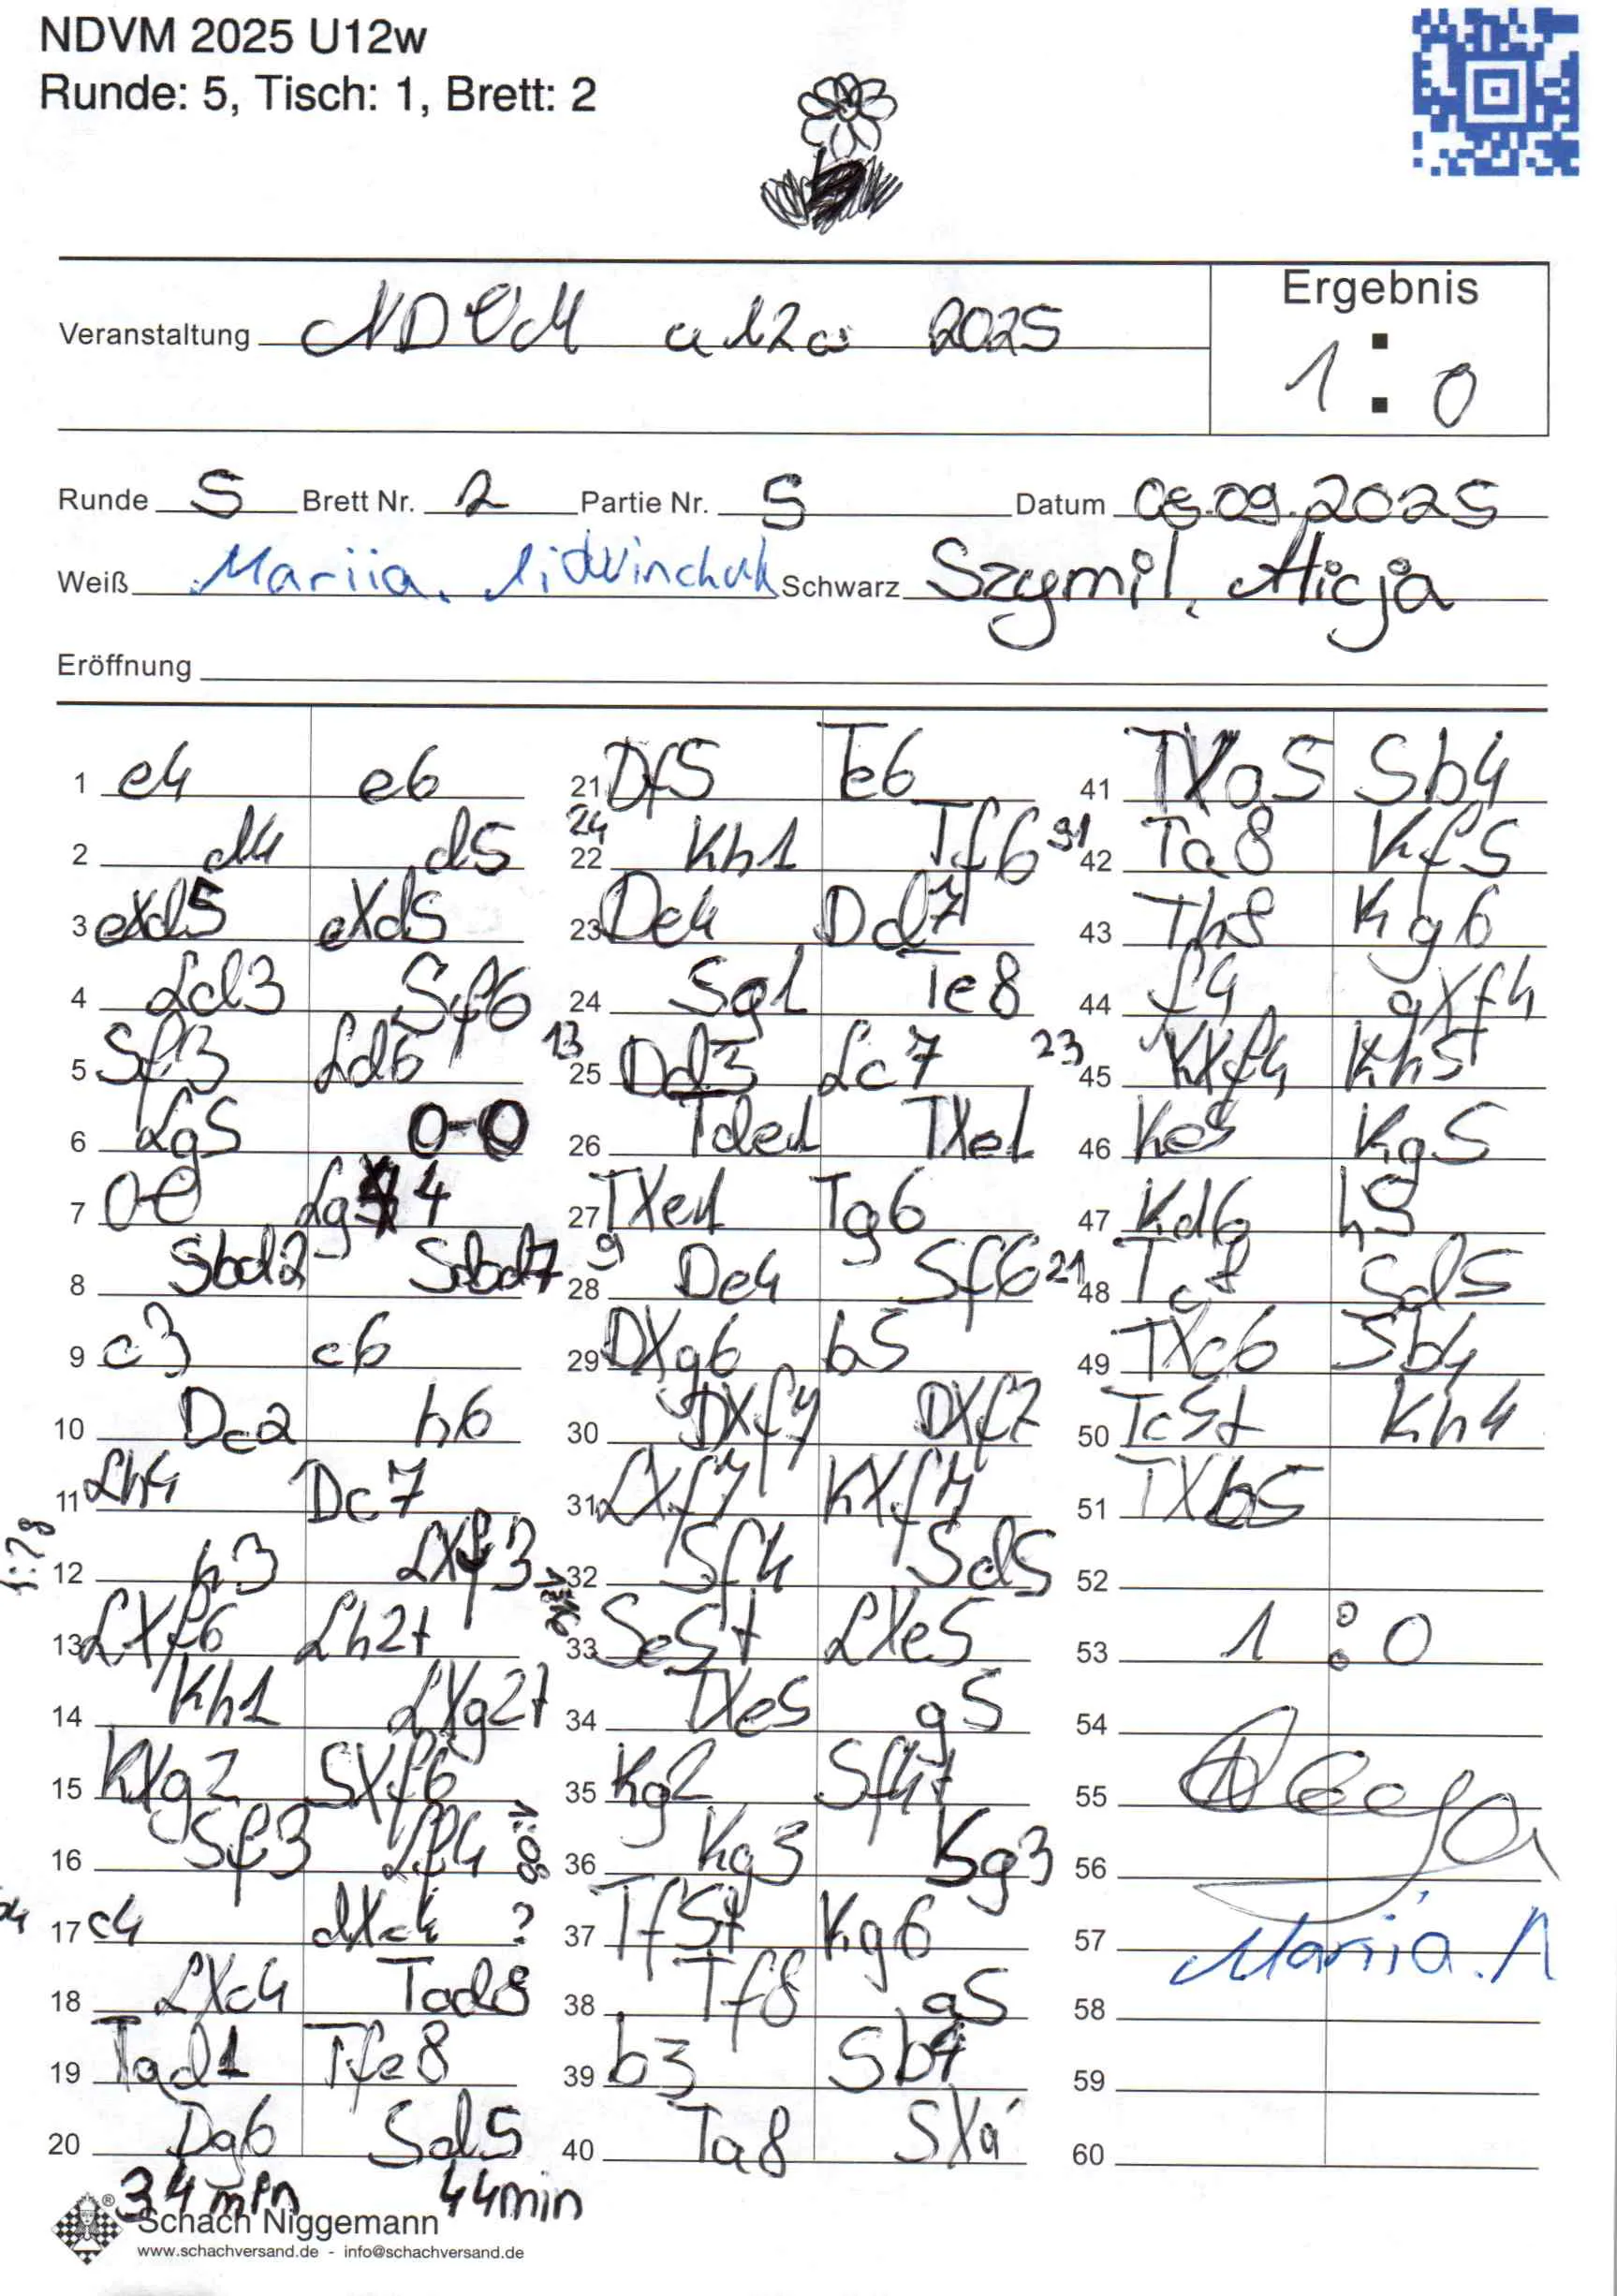 NDVM 2025 U12w
Runde: 5, Tisch: 1, Brett: 2
Ergebnis
Veranstaltung NDVM u12w 2025
1 : 0
Runde 5 Brett Nr. 2 Partie Nr. 5 Datum 05.09.2025
Weiß Mariia. Schwarz Szymil, Alicja
Eröffnung
1 e4 e6
2 d4 d5
3 eXd5 eXd5
4 Ld3 Sf6
5 Sf3 Ld6
6 Lg5 0-0
7 0-0 Lg4
8 Sbd2 Sbd7
9 c3 c6
10 Dc2 h6
11 Lh4 Dc7
12 h3 LXf3
13 LXf6 Lh2+
14 Kh1 LXg2+
15 KXg2 SXf6
16 Sf3 Lf4
17 c4 dXc4 ?
18 LXc4 Tad8
19 Tad1 Tfe8
20 Dg6 Sd5
34 min 44min
21 Df5 Te6
24
22 Kh1 Tf6
23 De4 Dd7
24 Sg1 Te8
13
25 Dd3 Lc7
26 Tde1 TXe1
27 TXe1 Tg6
9
28 De4 Sf6
29 DXg6 b5
30 DXf7 DXf7
31 LXf7 KXf7
32 Sf4 Sd5
33 Se5+ LXe5
34 TXe5 g5
35 Kg2 Sf4+
36 Kg3 Sg3
37 Tf5+ Kg6
38 Tf8 a5
39 b3 Sb4
40 Ta8 SXa
41 TXa5 Sb4
42 Ta8 Kf5
43 Th8 Kg6
44 f4 gXf4
23
45 KXf4 Kh5
46 Ke5 Kg5
47 Kd6 h5
21
48 Tc8 Sd5
49 TXc6 Sb4
50 Tc5+ Kh4
51 TXb5
52
53 1 : 0
54
55
56
57 Mariia.
58
59
60
Schach Niggemann
www.schachversand.de - info@schachversand.de